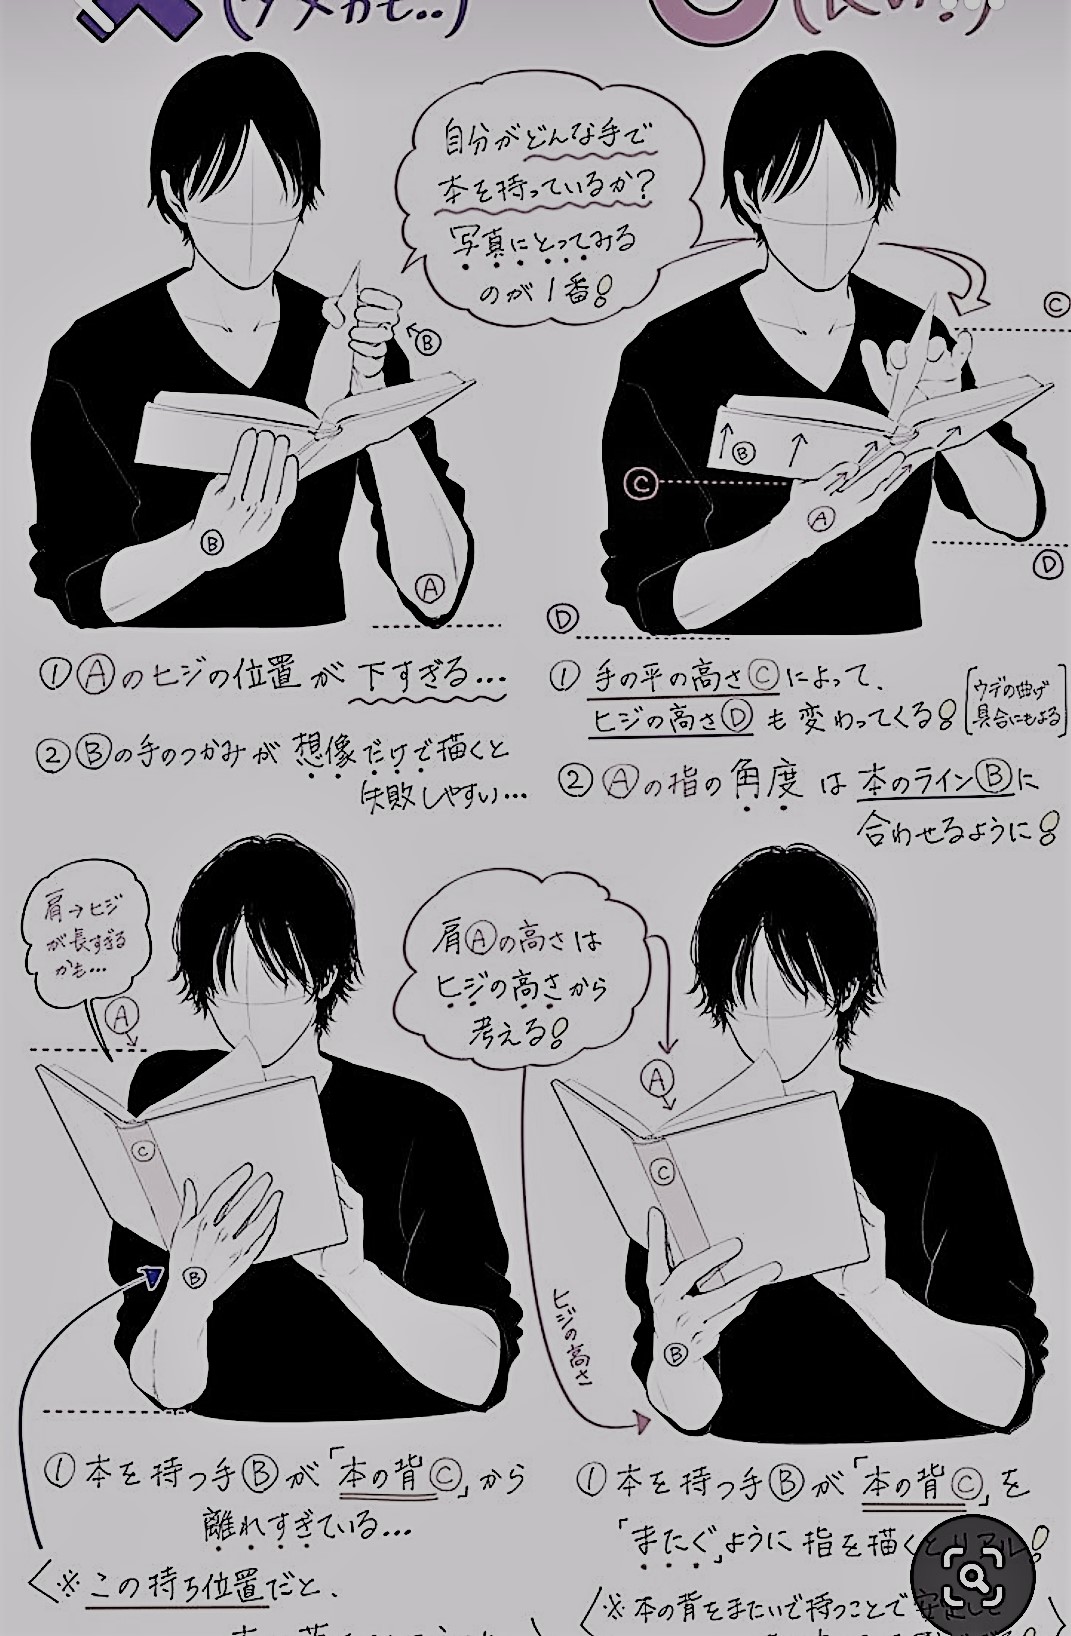 (ダメかも..)
(良い!)
自分がどんな手で
本を持っているか?
写真にとってみる
のが1番!
B
C
B
A
B
C
A
D
D
①Ⓐのヒジの位置が下すぎる...
②Ⓑの手のつかみが想像だけで描くと
失敗しやすい...
①手の平の高さⒸによって、
ヒジの高さⒹも変わってくる!
[ウデの曲げ
具合にもよる]
②Ⓐの指の角度は本のラインⒷに
合わせるように!
肩→ヒジ
が長すぎる
かも...
A
肩Ⓐの高さは
ヒジの高さから
考える!
A
C
B
C
B
ヒジの高さ
①本を持つ手Ⓑが「本の背Ⓒ」から
離れすぎている...
〈※この持ち位置だと、
①本を持つ手Ⓑが「本の背Ⓒ」を
「またぐ」ように指を描くとリアル!
〈※本の背をまたいで持つことで安定して